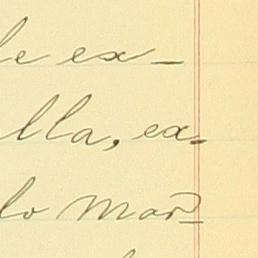 le ex-
lla, ex-
lo mar-